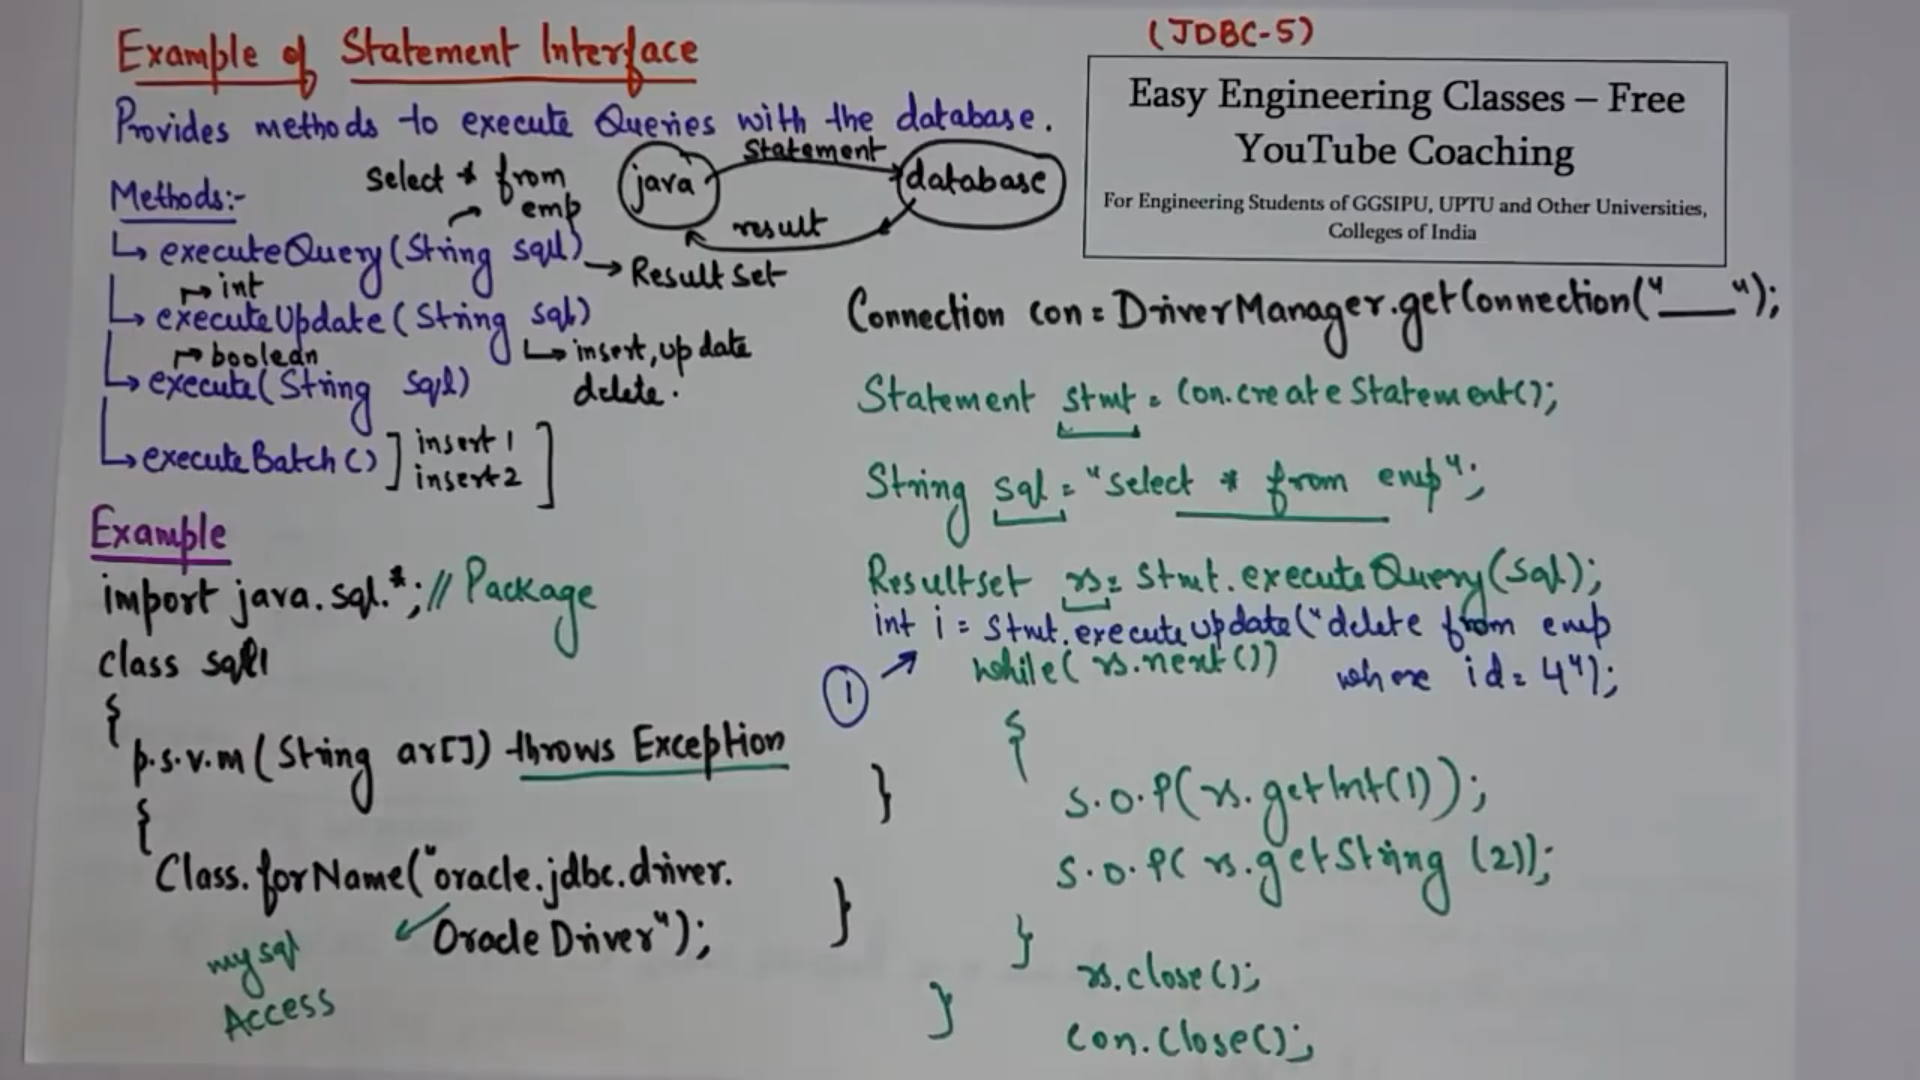 Example of Statement Interface
(JDBC-5)
Easy Engineering Classes – Free
YouTube Coaching
For Engineering Students of GGSIPU, UPTU and Other Universities,
Colleges of India
Provides methods to execute Queries with the database.
java
Statement
database
result
Methods:-
select * from
emp
executeQuery(String sql)
Result Set
int
executeUpdate(String sql)
insert, update
delete.
boolean
execute(String sql)
executeBatch()] insert1
insert2]
Example
import java.sql.*; // Package
class sql1
{
p.s.v.m (String ar[]) throws Exception
{
Class.forName("oracle.jdbc.driver.
OracleDriver");
mysql
Access
Connection con = DriverManager.getConnection("___");
Statement stmt = con.createStatement();
String sql = "select * from emp";
Resultset rs = stmt.executeQuery(sql);
int i = stmt.executeUpdate("delete from emp
where id = 4");
1
while(rs.next())
{
S.O.P(rs.getInt(1));
S.O.P(rs.getString(2));
}
rs.close();
con.close();
}
}
}